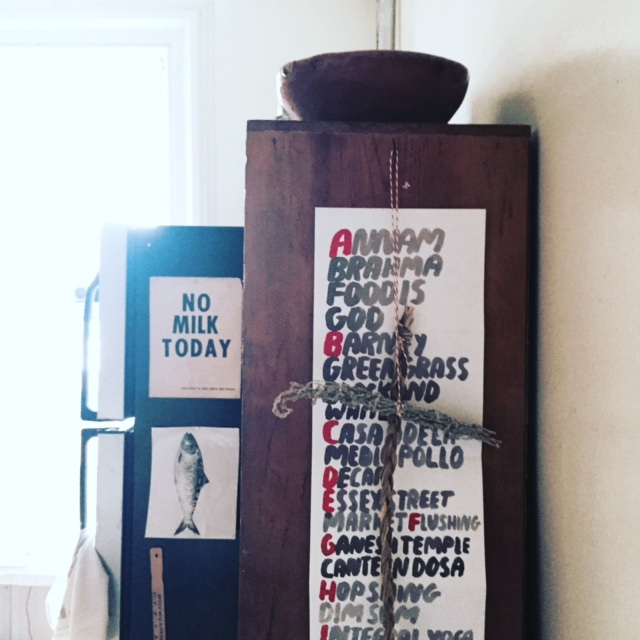 NO
MILK
TODAY
ANNAM
BRAHMA
FOOD IS
GOD
BARNEY
GREENGRASS
CASA DELA
MEDIO POLLO
DECAF
ESSEX STREET
MARKET FLUSHING
GANESH TEMPLE
CANTEEN DOSA
HOP SHING
DIM SUM
INTEGRAL YOGA